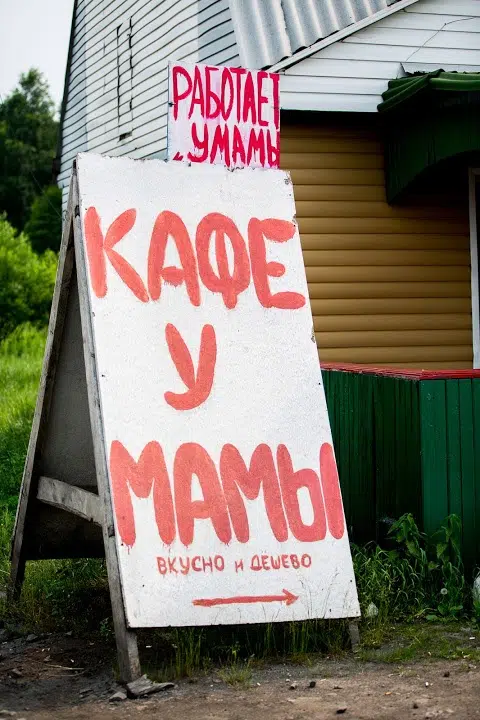 РАБОТАЕТ
"УМАМЫ
КАФЕ
У
МАМЫ
ВКУСНО и ДЕШЕВО